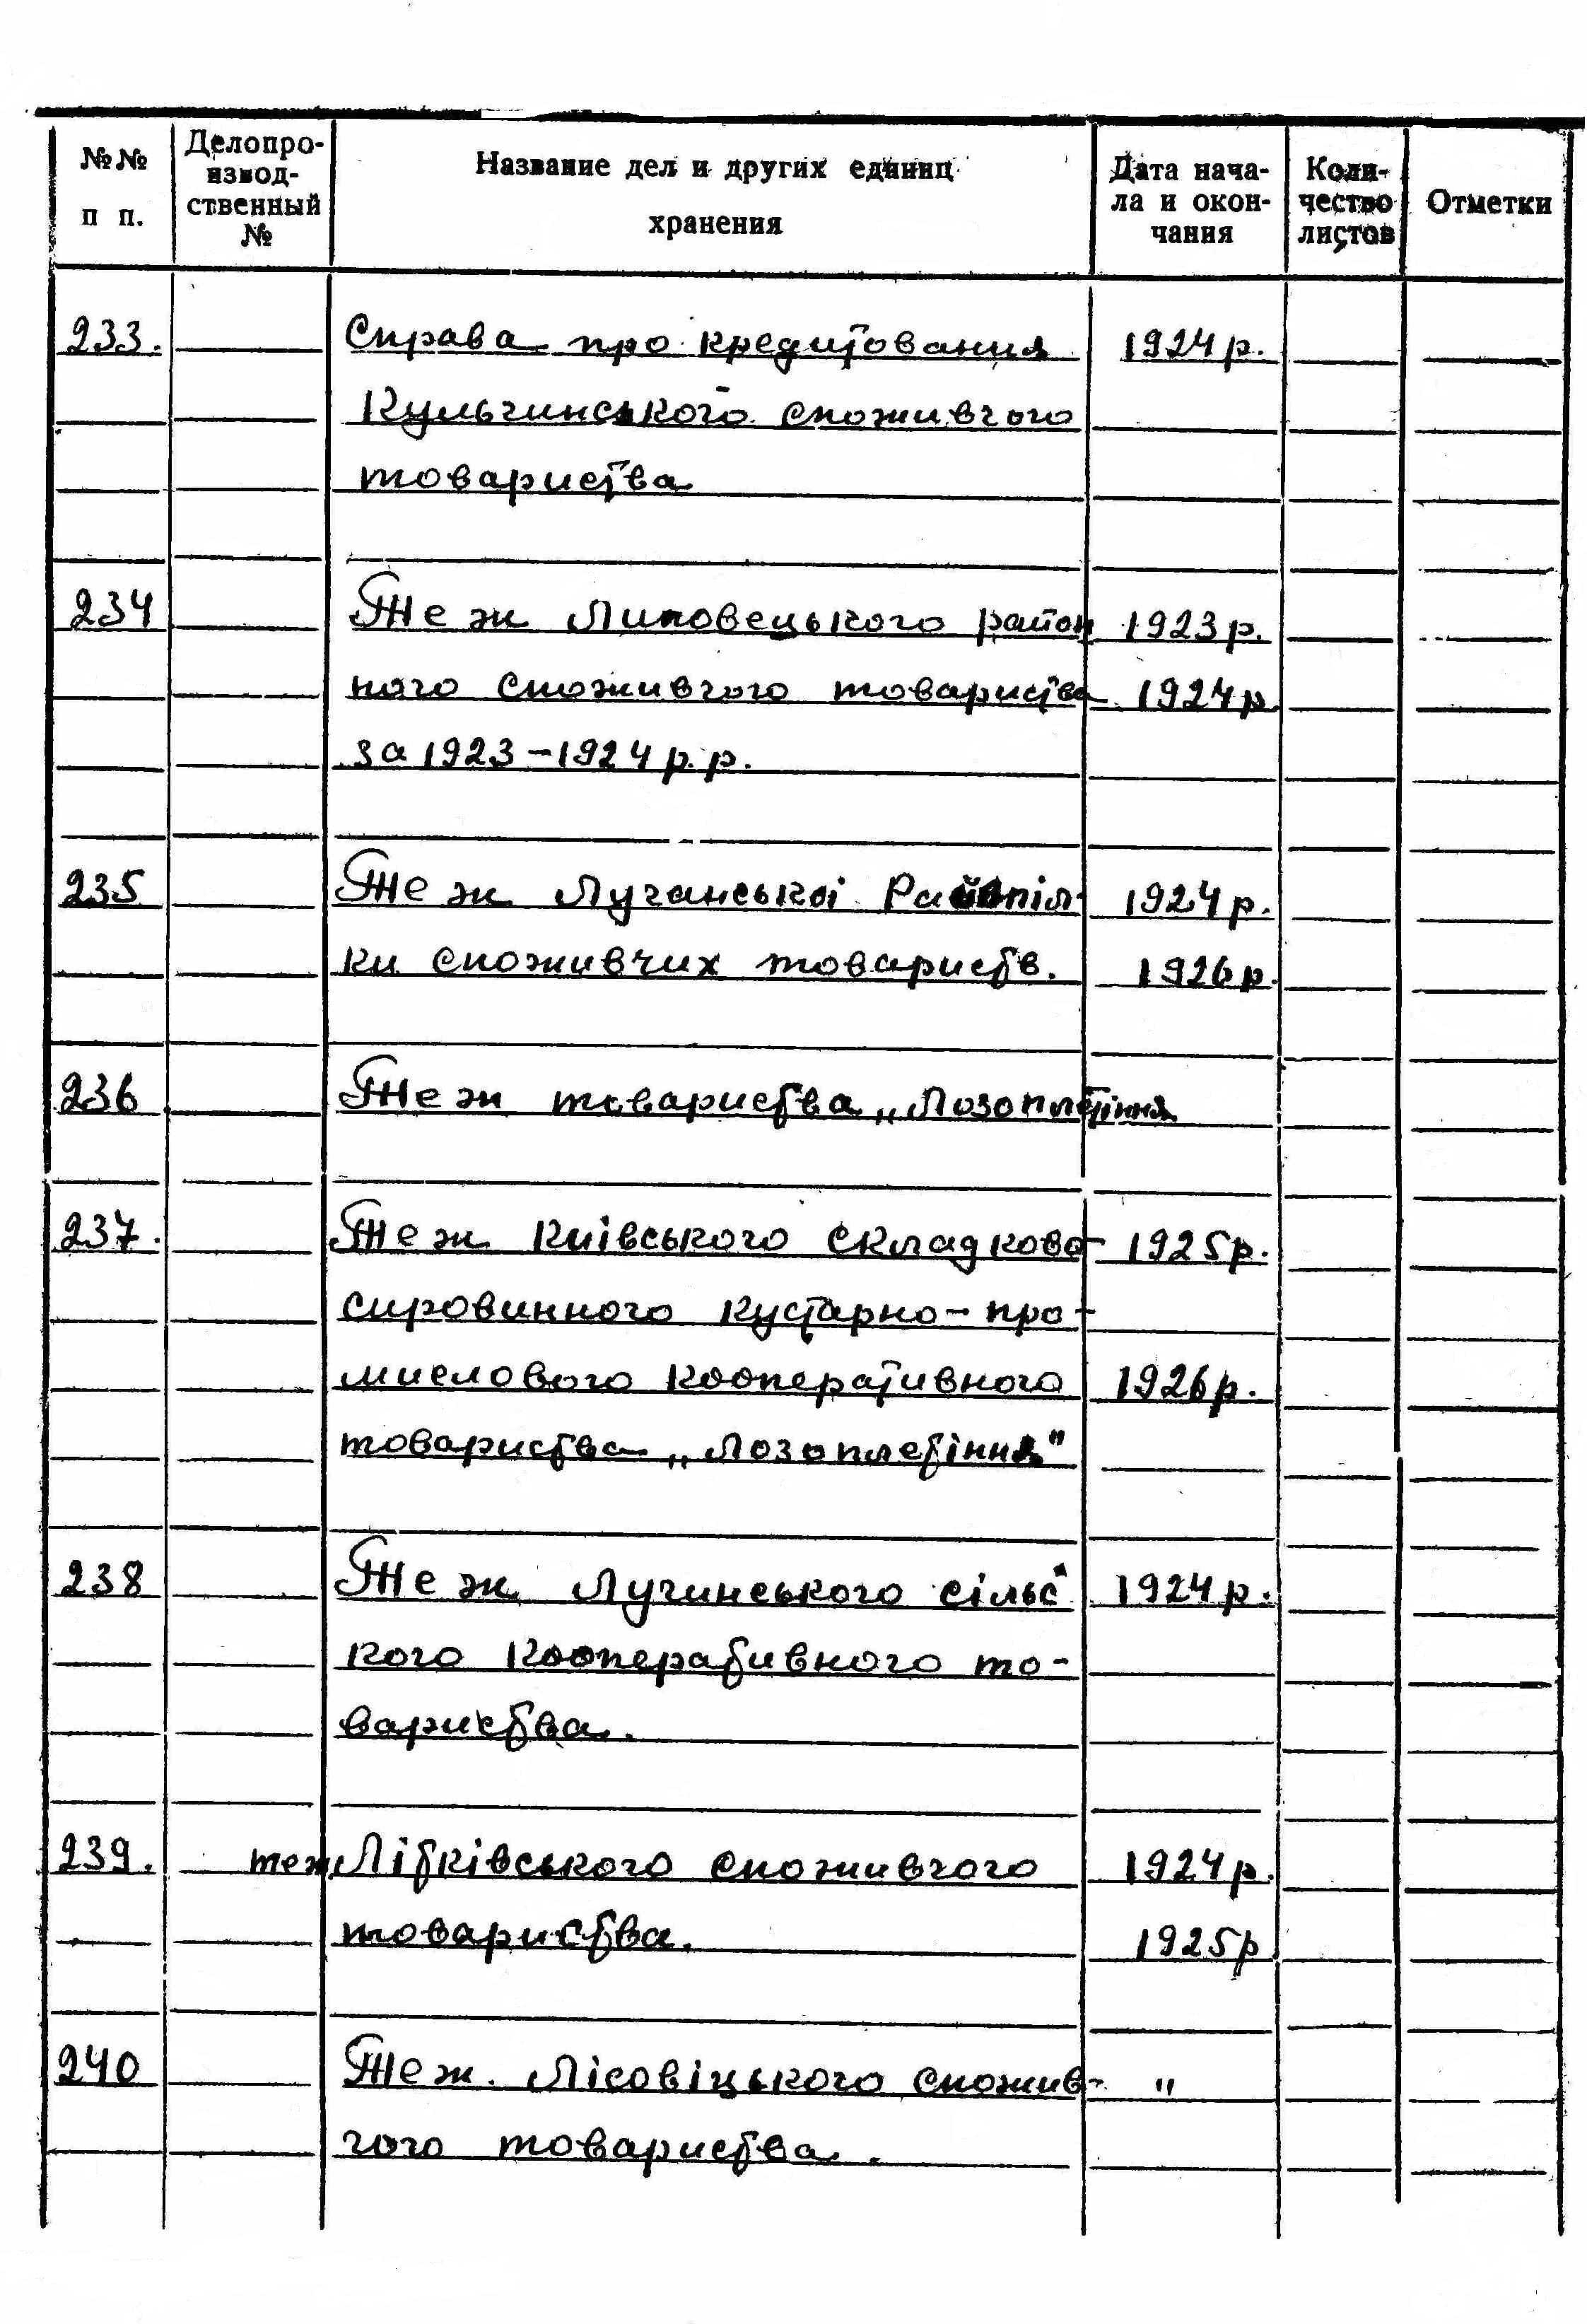 №№ п п.
Делопро-
извод-
ственный
№
Название дел и других единиц
хранения
Дата нача-
ла и окон-
чания
Коли-
чество
листов
Отметки
233. Справа про кредитования 1924 р.
Кульчинського споживчого
товариства
234 Теж Липовецького район 1923 р.
ного споживчого товариства 1924 р
за 1923-1924 р.р.
235 Теж Лучанської Райспіл- 1924 р.
ки споживчих товариств. 1926 р.
236 Теж товариства „Лозоплетіння
237. Теж Київського складково- 1925 р.
сировинного кустарно-про-
мислового кооперативного 1926 р.
товариства „Лозоплетіння"
238 Теж Лучинського сільсь 1924 р.
кого кооперативного то-
вариства.
239. теж Літківського споживчого 1924 р.
товариства. 1925 р
240 Теж. Лісовіцького спожив- "
чого товариства.